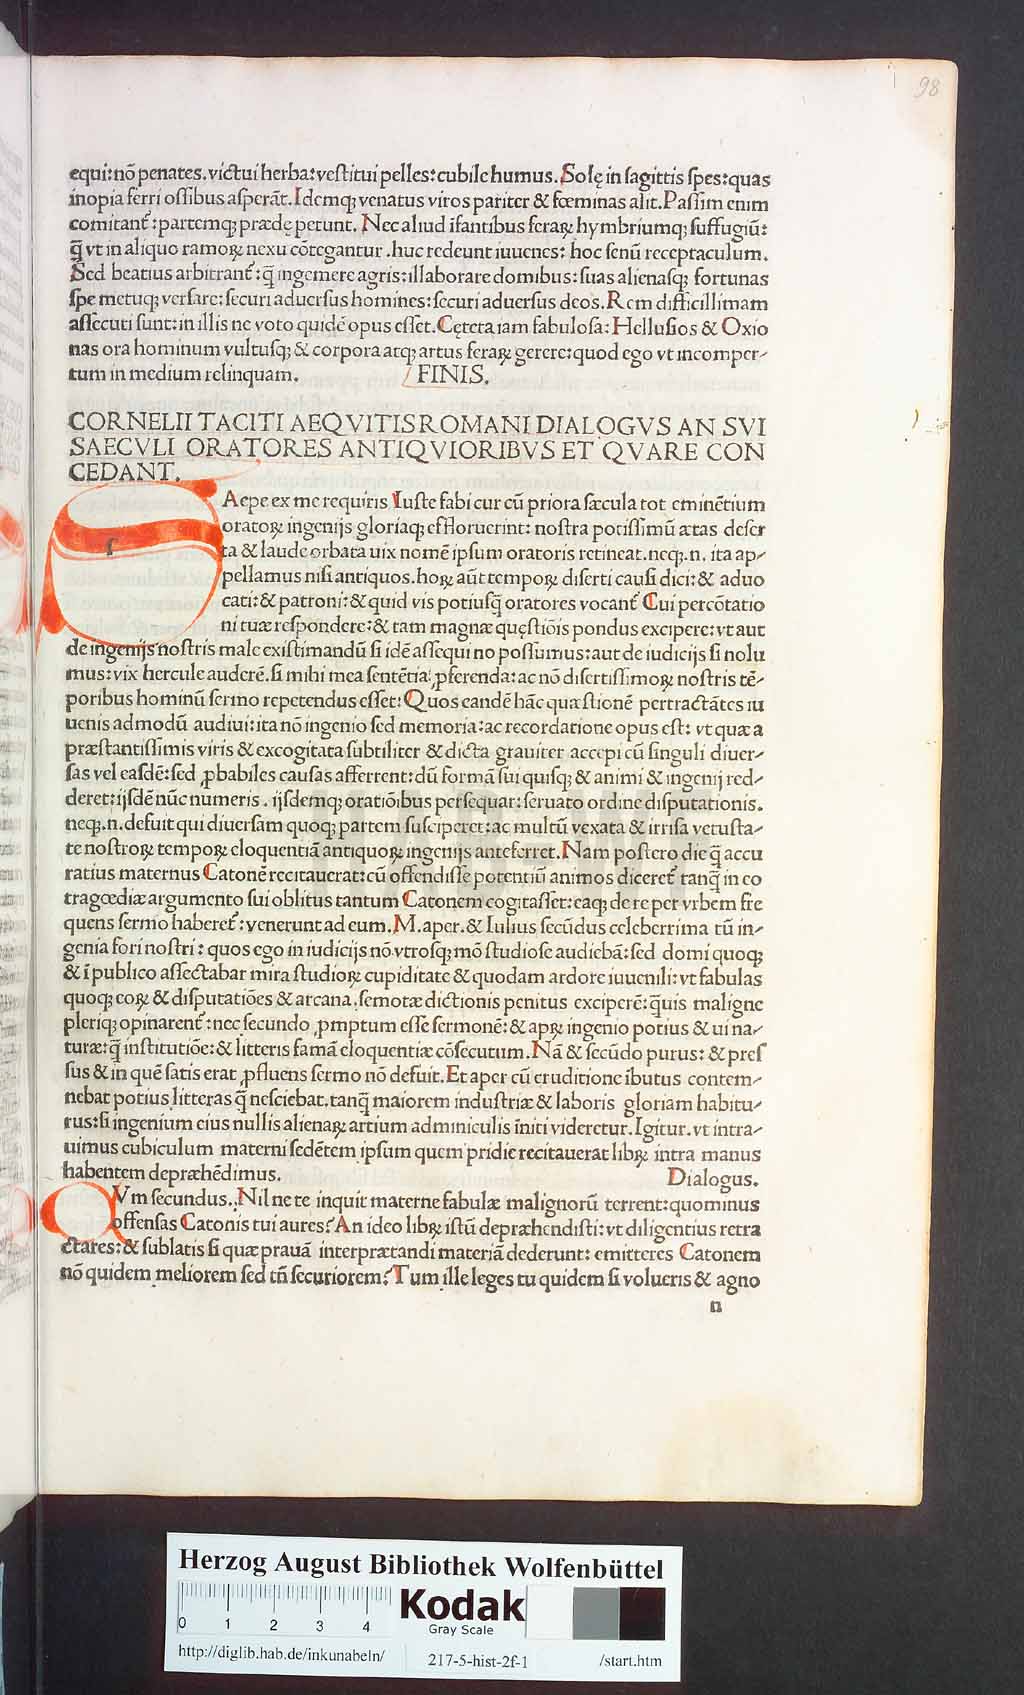 98
equi:nō penates.victui herba:vestitui pelles:cubile humus.Solę in sagittis spes:quas
inopia ferri ossibus asperāt.Idemqꝫ venatus viros pariter & fœminas alit.Passim enim
comitant᷑:partemqꝫ prædę petunt.Nec aliud īfantibus feraꝝ hymbriumqꝫ suffugiū:
q̄ vt in aliquo ramoꝝ nexu cōtegantur.huc redeunt iuuenes: hoc senū receptaculum.
Sed beatius arbitrant᷑:q̄ ingemere agris:illaborare domibus:suas alienasqꝫ fortunas
spe metuqꝫ versare:securi aduersus homines:securi aduersus deos.Rem difficillimam
assecuti sunt:in illis ne voto quidē opus esset.Cętera iam fabulosa:Hellusios & Oxio
nas ora hominum vultusqꝫ & corpora atqꝫ artus feraꝝ gerere:quod ego vt incomper-
tum in medium relinquam. FINIS.
CORNELII TACITI AEQVITIS ROMANI DIALOGVS AN SVI
SAECVLI ORATORES ANTIQVIORIBVS ET QVARE CON
CEDANT.
s
Aepe ex me requiris Iuste fabi cur cū priora sæcula tot eminētium
oratoꝝ ingenijs gloriaqꝫ effloruerint: nostra potissimū ætas deser
ta & laude orbata uix nomē ipsum oratoris retineat.neqꝫ.n. ita ap-
pellamus nisi antiquos.hoꝝ aūt tempoꝝ diserti causi dici:& aduo
cati:& patroni:& quid vis potiusq̄ oratores vocant᷑ Cui percōtatio
ni tuæ respondere:& tam magnæ quęstiōis pondus excipere:vt aut
de ingenijs nostris male existimandū si idē assequi no possumus:aut de iudicijs si nolu
mus:vix hercule auderē.si mihi mea sentētia ꝓferenda:ac nō disertissimoꝝ nostris tē-
poribus hominū sermo repetendus esset:Quos eandē hāc quæstionē pertractātes iu
uenis admodū audiui:ita nō ingenio sed memoria:ac recordatione opus est: vt quæ a
præstantissimis viris & excogitata subtiliter & dicta grauiter accepi cū singuli diuer-
sas vel easdē:sed ꝓbabiles causas afferrent:dū formā sui quisqꝫ & animi & ingenij red-
deret:ijsdē nūc numeris. ijsdemqꝫ oratiōibus persequar:seruato ordine disputationis.
neqꝫ.n.defuit qui diuersam quoqꝫ partem susciperet:ac multū vexata & irrisa vetusta-
te nostroꝝ tempoꝝ eloquentiā antiquoꝝ ingenijs anteferret.Nam postero die q̄ accu
ratius maternus Catonē recitauerat:cū offendisse potentiū animos diceret᷑ tanq̄ in eo
tragœdiæ argumento sui oblitus tantum Catonem cogitasset:eaqꝫ de re per vrbem fre
quens sermo haberet᷑:venerunt ad eum.M.aper.& Iulius secūdus celeberrima tū in-
genia fori nostri: quos ego in iudicijs nō vtrosqꝫ mō studiose audiebā:sed domi quoqꝫ
& ī publico assectabar mira studioꝝ cupiditate & quodam ardore iuuenili:vt fabulas
quoqꝫ eoꝝ & disputatiōes & arcana.semotæ dictionis penitus exciperē:q̄uis maligne
pleriqꝫ opinarent᷑:nec secundo ꝓmptum esse sermonē:& apꝝ ingenio potius & ui na-
turæ:q̄ institutiōe:& litteris famā eloquentiæ cōsecutum.Nā & secūdo purus: & pres
sus & in quē satis erat ꝓfluens sermo nō defuit.Et aper cū eruditione ībutus contem-
nebat potius litteras q̄ nesciebat.tanq̄ maiorem industriæ & laboris gloriam habitu-
rus:si ingenium eius nullis alienaꝝ artium adminiculis īniti videretur.Igitur.vt intra-
uimus cubiculum materni sedētem ipsum quem pridie recitauerat libꝝ intra manus
habentem depræhēdimus. Dialogus.
QVm secundus.Nil ne te inquit materne fabulæ malignorū terrent:quominus
offensas Catonis tui aures?An ideo libꝝ istū depræhendisti:vt diligentius retra
ctares:& sublatis si quæ prauā interprætandi materiā dederunt: emitteres Catonem
nō quidem meliorem sed tn̄ securiorem?Tum ille leges tu quidem si volueris & agno
n
Herzog August Bibliothek Wolfenbüttel
0 1 2 3 4
Kodak
Gray Scale
http://diglib.hab.de/inkunabeln/ 217-5-hist-2f-1 /start.htm